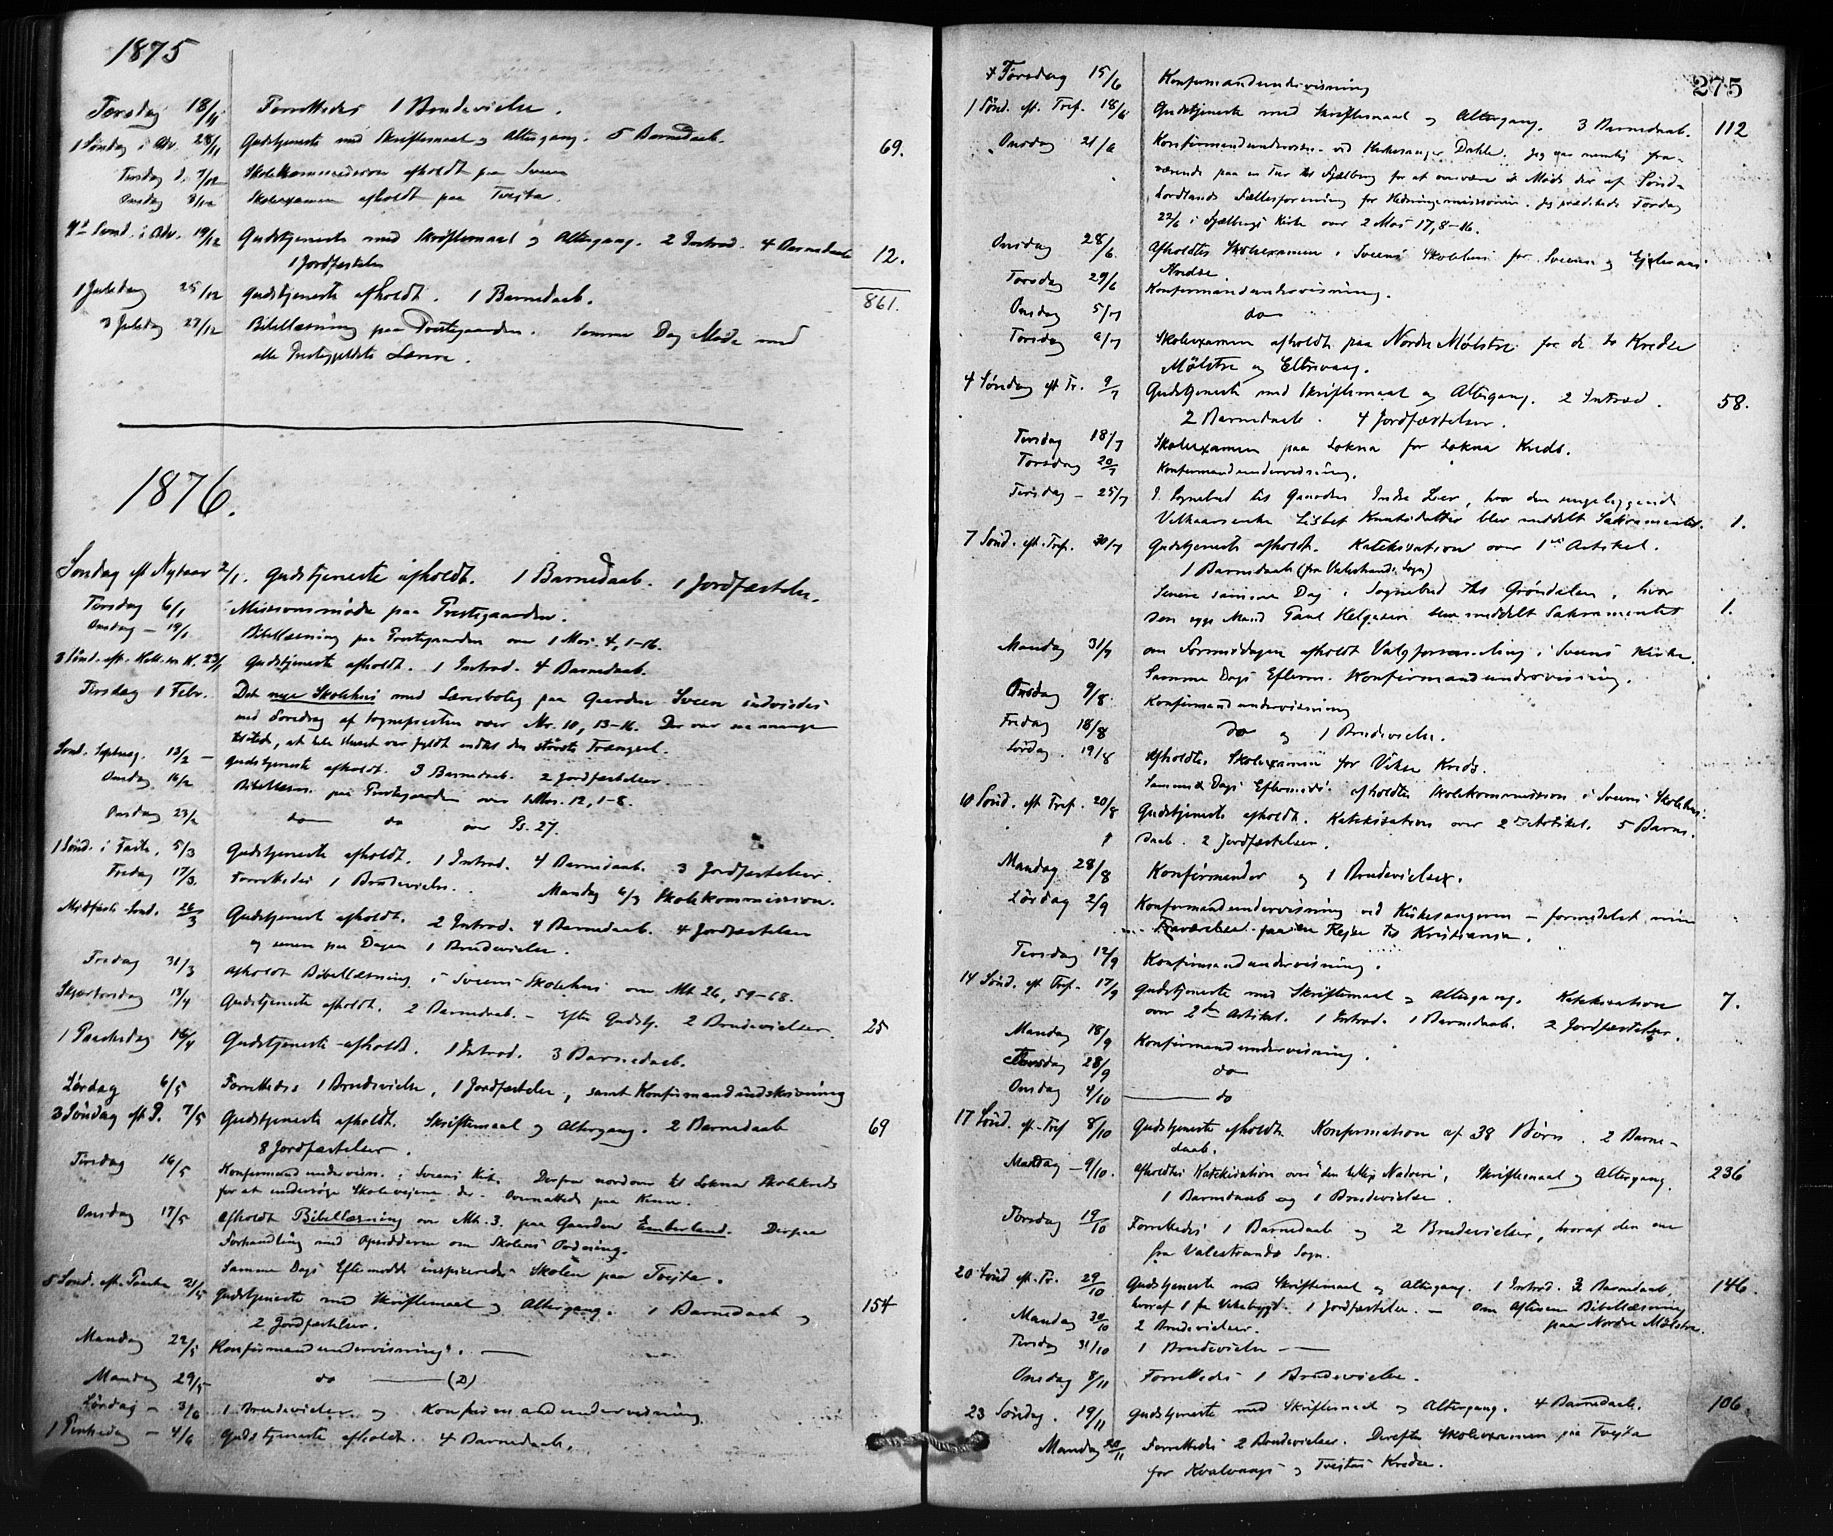 1875
Torsdag 18/11 Forrettedes 1 Brudevielse.
1 Søndag i Adv. 28/11 Gudstjeneste med Skriftemaal og Altergang. 5 Barnedaab. 69.
Tirsdag d. 7/12 Skolekommission afholdt paa Sveen
Onsdag 8/12 Skolexamen afholdt paa Tveita.
4de Sønd. i Adv. 19/12 Gudstjeneste med Skriftemaal og Altergang. 2 Introd. 4 Barnedaab 12.
1 Jordfæstelse
1 Juledag 25/12 Gudstjeneste afholdt. 1 Barnedaab. 861.
3 Juledag 27/12 Bibellæsning paa Prestegaarden. Samme Dag Møde med
alle Prestegjeldets Lærere.
1876.
Søndag eft Nytaar 2/1. Gudstjeneste afholdt. 1 Barnedaab. 1 Jordfæstelse.
Torsdag 6/1 Missionsmøde paa Prestegaarden.
Onsdag – 19/1 Bibellæsning paa Prestegaarden over 1 Mos. 4, 1–16.
3 Sønd. eft. Hell. tre K. 23/1 Gudstjeneste afholdt. 1 Introd. 4 Barnedaab.
Tirsdag 1 Febr. Det nye Skolehus med Lærerbolig paa Gaarden Sveen indviedes
med Foredrag af Sognepresten over Mr. 10, 13–16. Der var saa mange
tilstede, at hele Huset var fyldt indtil den største Trængsel.
Sønd. Septuag. 13/2 – Gudstjeneste afholdt. 3 Barnedaab. 2 Jordfæstelser.
Onsdag 16/2 Bibellæsn. paa Prestegaarden over 1 Mos. 12, 1–8.
Onsdag 23/2 do do over Ps. 27.
1 Sønd. i Faste. 5/3 Gudstjeneste afholdt. 1 Introd. 4 Barnedaab. 3 Jordfæstelser.
Fredag 17/3. Forrettedes 1 Brudevielse. Mandag 6/3 Skolekommission.
Midfaste Sønd. 26/3 Gudstjeneste afholdt. 2 Introd. 4 Barnedaab. 4 Jordfæstelser
og senere paa Dagen 1 Brudevielse.
Fredag 31/3 Afholdt Bibellæsning i Sveens Skolehus over Mt. 26, 59–68.
Skjærtorsdag 13/4 Gudstjeneste afholdt. 2 Barnedaab. – Efter Gudstj. 2 Brudevielser. 25
1 Paaskedag 16/4 Gudstjeneste afholdt. 1 Introd. 3 Barnedaab.
Lørdag 6/5 Forrettedes 1 Brudevielse, 1 Jordfæstelse, samt Konfirmandindskrivning
3 Søndag eft P. 7/5 Gudstjeneste afholdt. Skriftemaal og Altergang. 2 Barnedaab 69
8 Jordfæstelser.
Tirsdag 16/5 Konfirmandundervisn. i Sveens Kirke. Derfra nordover til Lokna Skolekreds
for at undersøge Skolevejene der. Overnattede paa
Onsdag 17/5 Afholdt Bibellæsning over Mt. 3. paa Gaarden Emberland. Derpaa
Forhandling med Opsidderne om Skolens Ordning.
Samme Dags Eftermiddag inspiceredes Skolen paa Tveita.
5 Sønd. eft. Paaske 21/5 Gudstjeneste med Skriftemaal og Altergang. 1 Barnedaab og 154
2 Jordfæstelser.
Mandag 22/5 Konfirmandundervisning.
Mandag 29/5 do
Lørdag – 3/6 1 Brudevielse og Konfirmandundervisning
1 Pintsedag – 4/6 Gudstjeneste afholdt. 4 Barnedaab.
275
Torsdag 15/6 Konfirmandundervisning
1 Sønd. eft. Tref. 18/6 Gudstjeneste med Skriftemaal og Altergang. 3 Barnedaab. 112
Onsdag 21/6 Konfirmandundervisn. ved Kirkesanger Dahle. Jeg var nemlig fra-
værende paa en Tur til Fjælberg for at overvære et Møde der af Sønd-
hordlands Fællesforening for Hedningemissionen. Jeg prædikede Torsdag
22/6 i Fjælbergs Kirke over 2 Mos 17, 8–16.
Onsdag 28/6. Afholdtes Skolexamen i Sveens Skolehus for Sveens og
Kredse.
Torsdag 29/6 Konfirmandundervisning.
Onsdag 5/7 do
Torsdag 6/7 Skolexamen afholdt paa Nordre Mølstre for de to Kredse
Mølstre og Eltravaag.
4 Søndag eft Tr. 9/7 Gudstjeneste med Skriftemaal og Altergang. 2 Introd. 58.
2 Barnedaab. 4 Jordfæstelser.
Tirsdag 18/7 Skolexamen paa Lokna for Lokna Kreds.
Torsdag 20/7 Konfirmandundervisning.
Tirsdag – 25/7 I Sognebud til Gaarden Indre Lier, hvor den sengeliggende
Velkaarsenke Lisbet Knutsdatter blev meddelt Sakramentet. 1.
7 Sønd. eft. Tref. 30/7 Gudstjeneste afholdt. Katekisation over 1ste Artikel.
1 Barnedaab (fra Valestrands Sogn)
Senere samme Dag i Sognebud til Grøndalen, hvor
den syge Mand Paul Helgesen blev meddelt Sakramentet 1.
Mandag 31/7 om Formiddagen afholdt Valgforsamling i Sveens Kirke.
Samme Dags Efterm. Konfirmandundervisning.
Onsdag 9/8. Konfirmandundervisning
Fredag 18/8 do og 1 Brudevielse.
Lørdag. 19/8 Afholdtes Skolexamen for Vikse Kreds.
Samme Dags Eftermid. afholdtes Skolekommission i Sveens Skolehus.
10 Sønd. eft Tref. 20/8 Gudstjeneste afholdt. Katekisation over 2den Artikel. 5 Barne-
daab. 2 Jordfæstelser.
Mandag 28/8 Konfirmander og 1 Brudevielse.
Lørdag 2/9 Konfirmandundervisning ved Kirkesangeren – formedelst min
Fraværelse paa en Rejse til Kristiania.
Tirsdag 12/9 Konfirmandundervisning.
14 Sønd. eft Tref. 17/9 Gudstjeneste med Skriftemaal og Altergang. Katekisation 7.
over 2den Artikel. 1 Introd. 1 Barnedaab. 2 Jordfæstelser.
Mandag 18/9 Konfirmandundervisning.
Torsdag 28/9 do
Onsdag 4/10 do
17 Sønd. eft. Tref 8/10 Gudstjeneste afholdt Konfirmation af 38 Børn. 2 Barne-
daab.
Mandag – 9/10. Afholdtes Katekisation over "den hellige Nadvere", Skriftemaal og Altergang. 236
1 Barnedaab og 1 Brudevielse.
Torsdag 19/10 Forrettedes 1 Barnedaab og 2 Brudevielser, hvoraf den ene
fra Valestrands Sogn.
20 Sønd eft. Tr. 29/10 Gudstjeneste med Skriftemaal og Altergang. 1 Introd. 3 Barnedaab, 146.
hvoraf 1 fra Vikebygd. 1 Jordfæstelse. – Om Aftenen Bibellæsning
paa Nordre Mølstre.
Mandag 30/10 2 Brudevielser.
Tirsdag 31/10 1 Brudevielse
Onsdag 8/11 Forrettedes 1 Brudevielse.
23 Søndag. 19/11 Gudstjeneste med Skriftemaal og Altergang. 4 Barnedaab. 106.
Mandag 20/11 Forrettedes 2 Brudevielser. Derefter Skolexamen paa Tveita
for Kvalvaags og Tveitas Kredse.